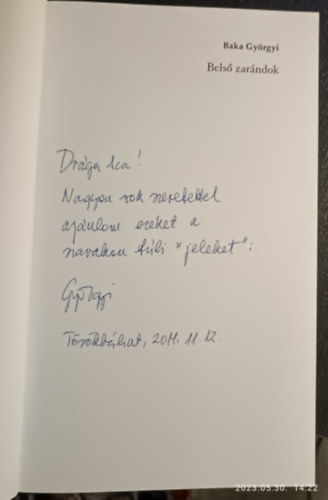 Baka Györgyi
Belső zarándok
Drága Ica!
Nagyon sok szeretettel
ajánlom ezeket a
szavakon túli "jeleket":
Györgyi
Törökbálint, 2011. 11. 12.
2023.05.30. 14:22